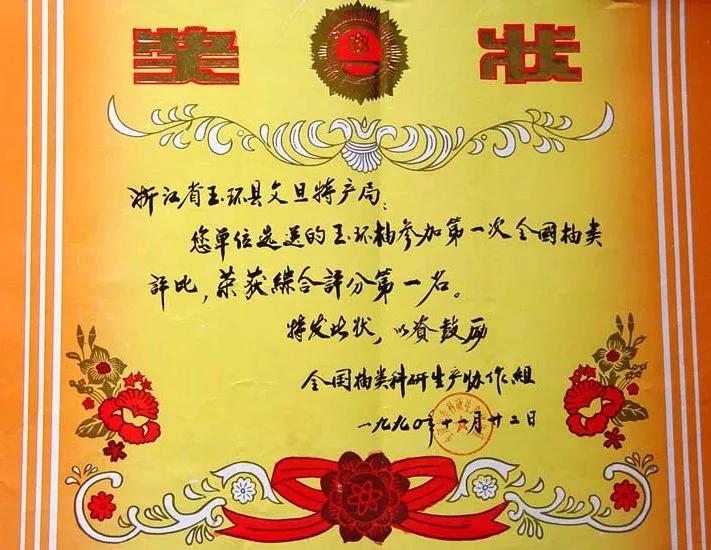 奖状
浙江省玉环县文旦特产局:
您单位选送的玉环柚参加第一次全國柚类
評比,荣获綜合評分第一名。
特发此状,以资鼓励
全国柚类科研生产协作組
一九九〇年十一月廿二日